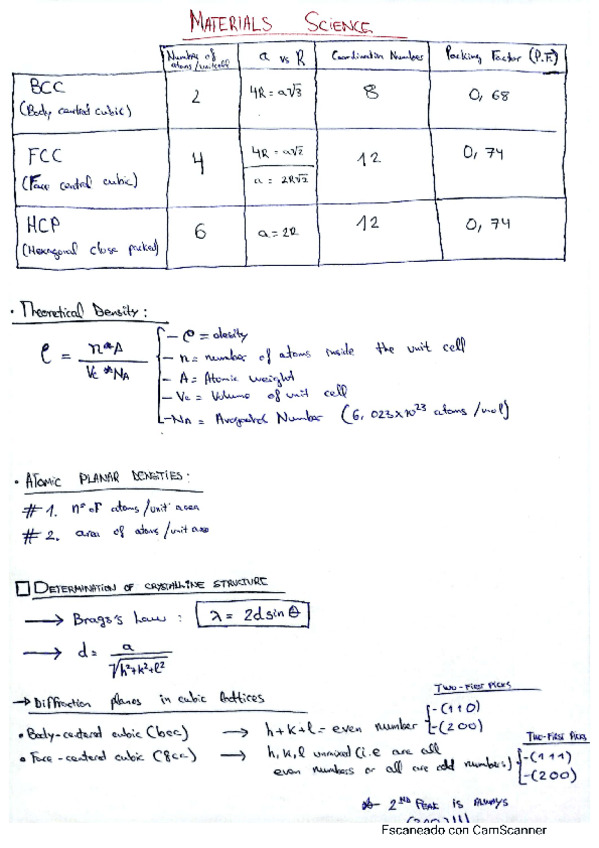 MATERIALS SCIENCE
Number of atoms/unit cell | a vs R | Coordination Number | Packing Factor (P.F.)
BCC (Body centred cubic) | 2 | 4R = a√3 | 8 | 0,68
FCC (Face centred cubic) | 4 | 4R = a√2 | 12 | 0,74
a = 2R√2
HCP (Hexagonal close packed) | 6 | a = 2R | 12 | 0,74
• Theoretical Density:
ρ = n*A / Vc * NA
- ρ = desity
- n = number of atoms inside the unit cell
- A = Atomic weight
- Vc = Volume of unit cell
- NA = Avogadro's Number (6,023x10^23 atoms/mol)
• ATOMIC PLANAR DENSITIES:
# 1. nº of atoms/unit area
# 2. area of atoms/unit area
□ DETERMINATION OF CRYSTALLINE STRUCTURE
→ Bragg's Law: λ = 2d sin θ
→ d = a / √h²+k²+l²
→ Diffraction planes in cubic lattices
TWO-FIRST PICKS
• Body-centered cubic (bcc) → h+k+l = even number
-(110)
-(200)
• Face-centered cubic (fcc) → h,k,l unmixed (i.e are all even numbers or all are odd numbers)
TWO-FIRST PICKS
-(111)
-(200)
2ND PEAK IS ALWAYS
(200)!!!
Escaneado con CamScanner